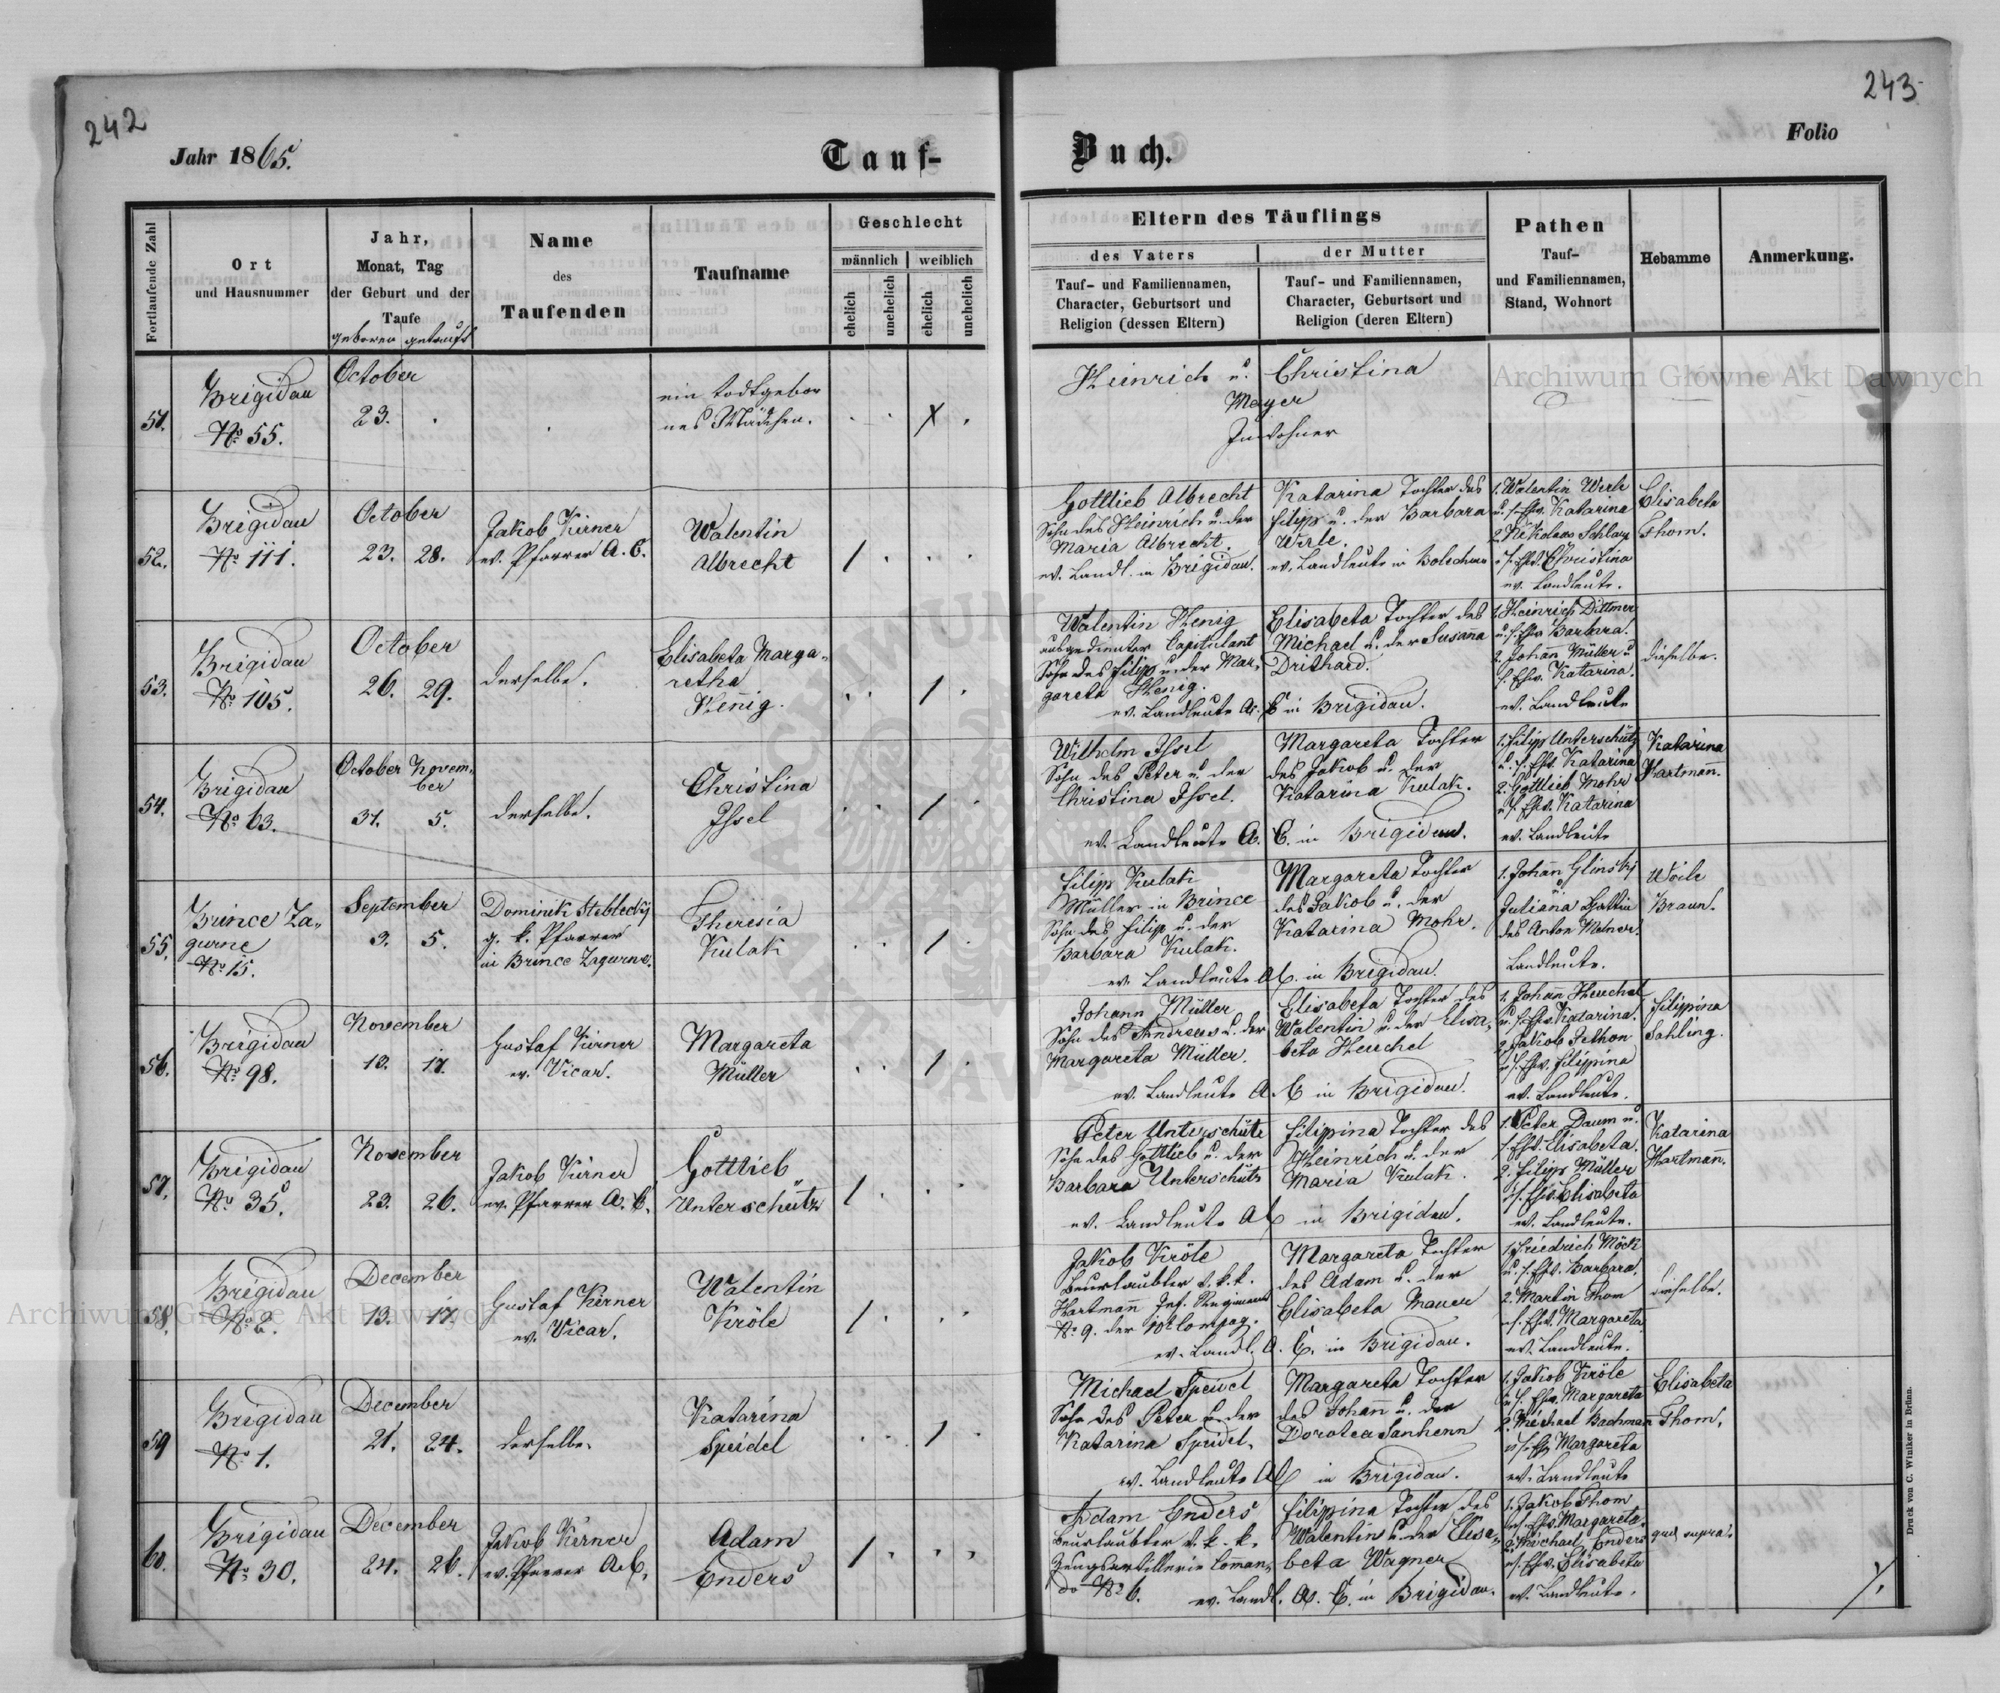 242
243.
Jahr 1865.
Tauf-
Buch.
Folio
Fortlaufende Zahl
Ort
und Hausnummer
Jahr,
Monat, Tag
der Geburt und der
Taufe
geboren getauft
Name
des
Taufenden
Taufname
Geschlecht
männlich
weiblich
ehelich
unehelich
ehelich
unehelich
Eltern des Täuflings
des Vaters
Tauf- und Familiennamen,
Character, Geburtsort und
Religion (dessen Eltern)
der Mutter
Tauf- und Familiennamen,
Character, Geburtsort und
Religion (deren Eltern)
Pathen
Tauf-
und Familiennamen,
Stand, Wohnort
Hebamme
Anmerkung.
51.
Brigidau
No 55.
October
23. .
ein todtgebor
nes Mädchen.
X
Heinrich u. Christina
Mayer
Inwohner
52.
Brigidau
No 111.
October
23. 28.
Jakob Kürner
ev. Pfarrer A. C.
Walentin
Albrecht
/
Gottlieb Albrecht
Sohn des Heinrich u. der
Maria Albrecht.
ev. Landl. in Brigidau.
Katarina Tochter des
Filipp u. der Barbara
Werle.
ev. Landleute in
1. Walentin Werle
u. s. Ehw. Katarina
2. Nikolaus
u. s. Ehw. Christina
ev. Landleute.
Elisabeta
Thom.
53.
Brigidau
No 105.
October
26. 29.
derselbe.
Elisabeta Marga-
retha
Henig.
/
Walentin Henig
ausgedienter Capitulant
Sohn des Filipp u. der Mar-
gareta Henig.
Elisabeta Tochter des
Michael u. der Susana
Drithard.
ev. Landleute A. C in Brigidau.
1. Heinrich Dittmer
u. s. Ehw. Barbara.
2. Johann Müller u
s. Ehw. Katarina.
ev. Landleute
dieselbe.
54.
Brigidau
No 63.
October Novem-
ber
31. 5.
derselbe.
Christina
Issel
/
Wilhelm Issel
Sohn des Peter u. der
Christina Issel.
Margareta Tochter
des Jakob u. der
Katarina Kulak.
ev. Landleute A. C. in Brigidau.
1. Filipp Unterschütz
u. s. Ehw. Katarina
2. Gottlieb Mohr
u. s. Ehw. Katarina
ev. Landleute
Katarina
Hartmann.
55.
Brince Za-
gurne
No 15.
September
3. 5.
Dominik Steblecky
g. k. Pfarrer
in Brince Zagurne.
Theresia
Kulak
/
Filipp Kulak
Müller in Brince
Sohn des Filip u. der
Barbara Kulak.
Margareta Tochter
des Jakob u. der
Katarina Mohr.
ev. Landleute A C. in Brigidau.
1. Johann Glinsky
u.
Juliana Gattin
des Anton Melner.
Landleute.
Braun.
56.
Brigidau
No 98.
November
12. 17.
Gustaf Kürner
ev. Vicar.
Margareta
Müller
/
Johann Müller
Sohn des Andreas u. der
Margareta Müller.
Elisabeta Tochter des
Walentin u. der Elisa-
beta Heuchel
ev. Landleute A. C in Brigidau.
1. Johann Heuchel
u. s. Ehw. Katarina.
2. Jakob Pethon
u. s. Ehw. Filippina
ev. Landleute.
Filippina
Sahling.
57.
Brigidau
No 35.
November
23. 26.
Jakob Kürner
ev. Pfarrer A. C.
Gottlieb
Unterschütz
/
Peter Unterschütz
Sohn des Gottlieb u. der
Barbara Unterschütz
Filipina Tochter des
Heinrich u. der
Maria Kulak.
ev. Landleute A C in Brigidau.
1. Peter Daum u.
s. Ehw. Elisabeta.
2. Filipp Müller
u. s. Ehw. Elisabeta
ev. Landleute.
Katarina
Hartmann.
58.
Brigidau
No 2.
December
13. 17.
Gustaf Kürner
ev. Vicar.
Walentin
Kröle
/
Jakob Kröle
Beurlaubter d. k. k.
Hartmann Inf. Regiments
No 9. der 10t Compag.
Margareta Tochter
des Adam u. der
Elisabeta Mauer
ev. Landl. A. C. in Brigidau.
1. Friedrich Möck
u. s. Ehw. Barbara.
2. Martin Thom
u. s. Ehw. Margareta.
ev. Landleute.
dieselbe.
59
Brigidau
No 1.
December
21. 24.
derselbe.
Katarina
Speidel
/
Michael Speidel
Sohn des Peter u. der
Katarina Speidel.
Margareta Tochter
des Johann u. der
Dorotea Sanhenn
ev. Landleute A C in Brigidau.
1. Jakob Kröle
u. s. Ehw. Margareta
2. Michael Bachman
u. s. Ehw. Margareta
ev. Landleute
Elisabeta
Thom.
60.
Brigidau
No 30.
December
24. 26.
Jakob Kürner
ev. Pfarrer A. C.
Adam
Enders
/
Adam Enders
Beurlaubter d. k. k.
Zeugsartillerie Comman-
do No 6.
Filippina Tochter des
Walentin u. der Elisa-
beta Wagner
ev. Landl. A. C. in Brigidau.
1. Jakob Thom
u. s. Ehw. Margareta.
2. Michael Enders
u. s. Ehw. Elisabeta
ev. Landleute.
quae supra.
Druck von C. Winiker in Brünn.
Archiwum Główne Akt Dawnych
Archiwum Główne Akt Dawnych